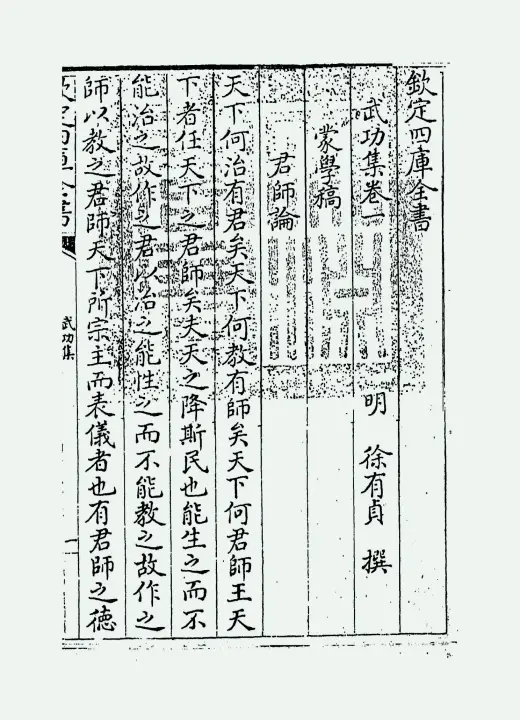 欽定四庫全書
武功集卷一
明 徐有貞 撰
蒙學稿
君師論
天下何治有君矣天下何教有師矣天下何君師王天
下者任天下之君師矣夫天之降斯民也能生之而不
能治之故作之君以治之能性之而不能教之故作之
師以教之君師天下所宗主而表儀者也有君師之德
欽定四庫全書
武功集
一